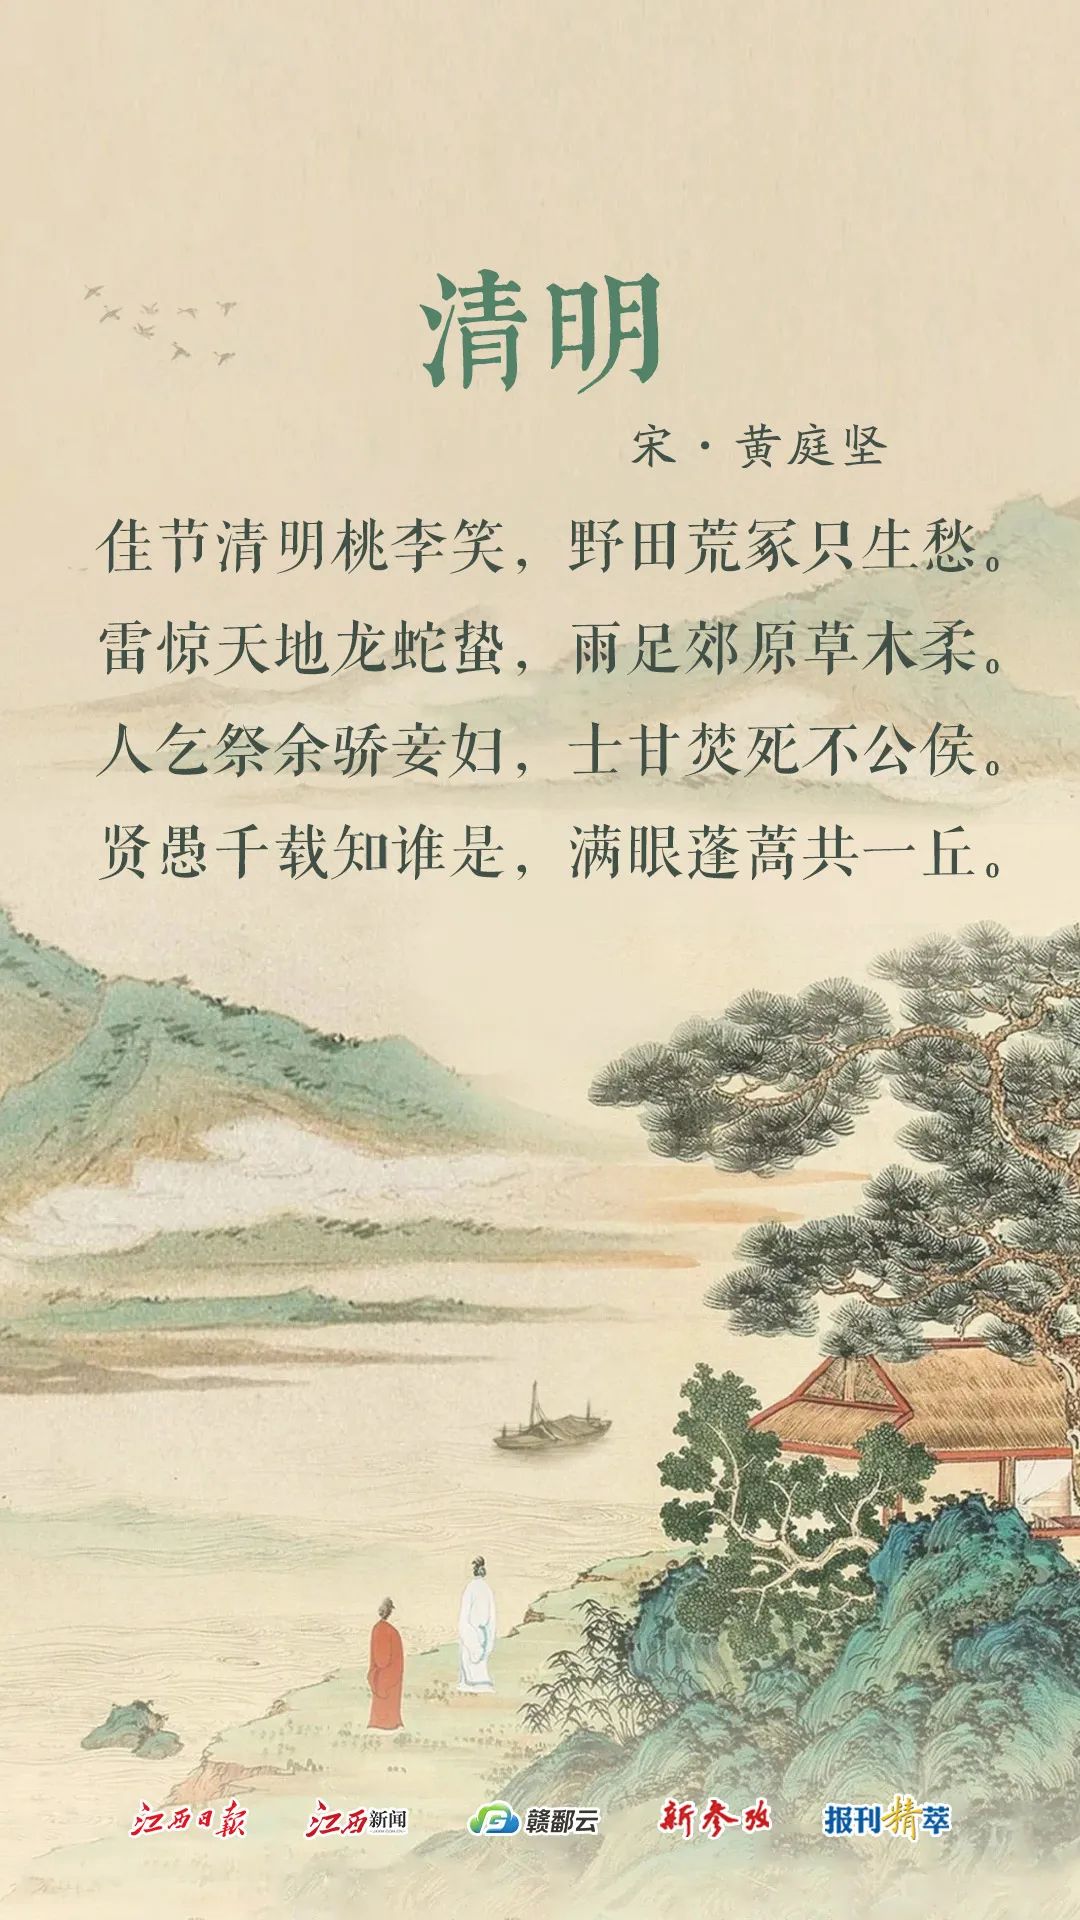 清明
宋·黄庭坚
佳节清明桃李笑，野田荒冢只生愁。
雷惊天地龙蛇蛰，雨足郊原草木柔。
人乞祭余骄妾妇，士甘焚死不公侯。
贤愚千载知谁是，满眼蓬蒿共一丘。
江西日报 江西新闻 赣鄱云 新参考 报刊精萃